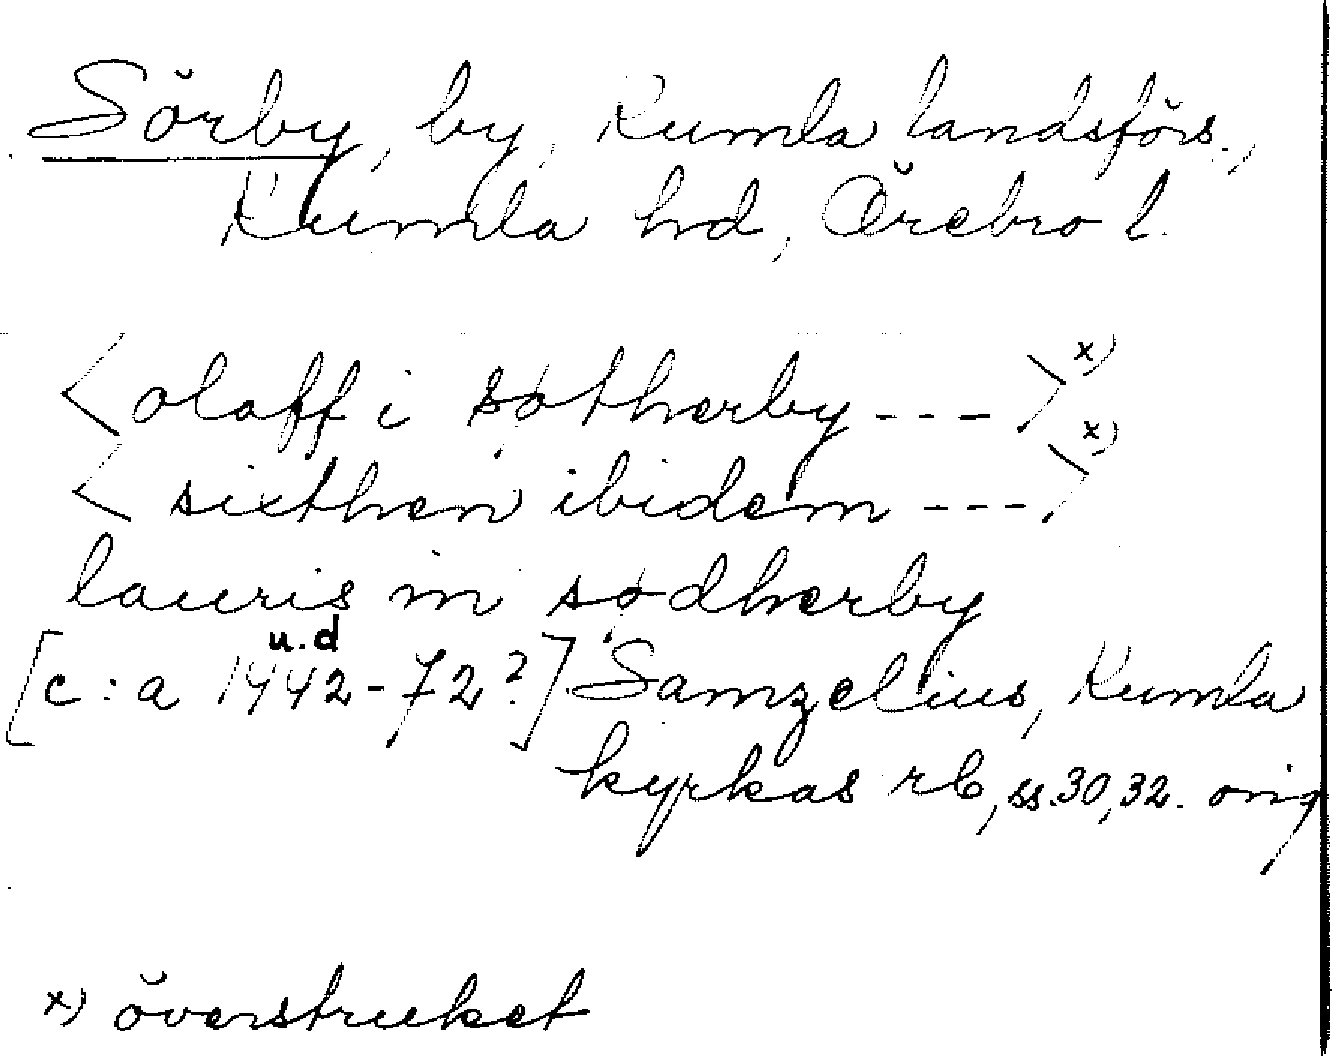 Sörby, by, Kumla landsförs.,
Kumla hd, Örebro l.
<olaff i søtherby --->x)
<sixthen ibidem --->x)
lauris in sødherby
u.d
[c:a 1442-72?] Samzelius, Kumla
kyrkas rb, ss. 30, 32. orig
x) överstruket